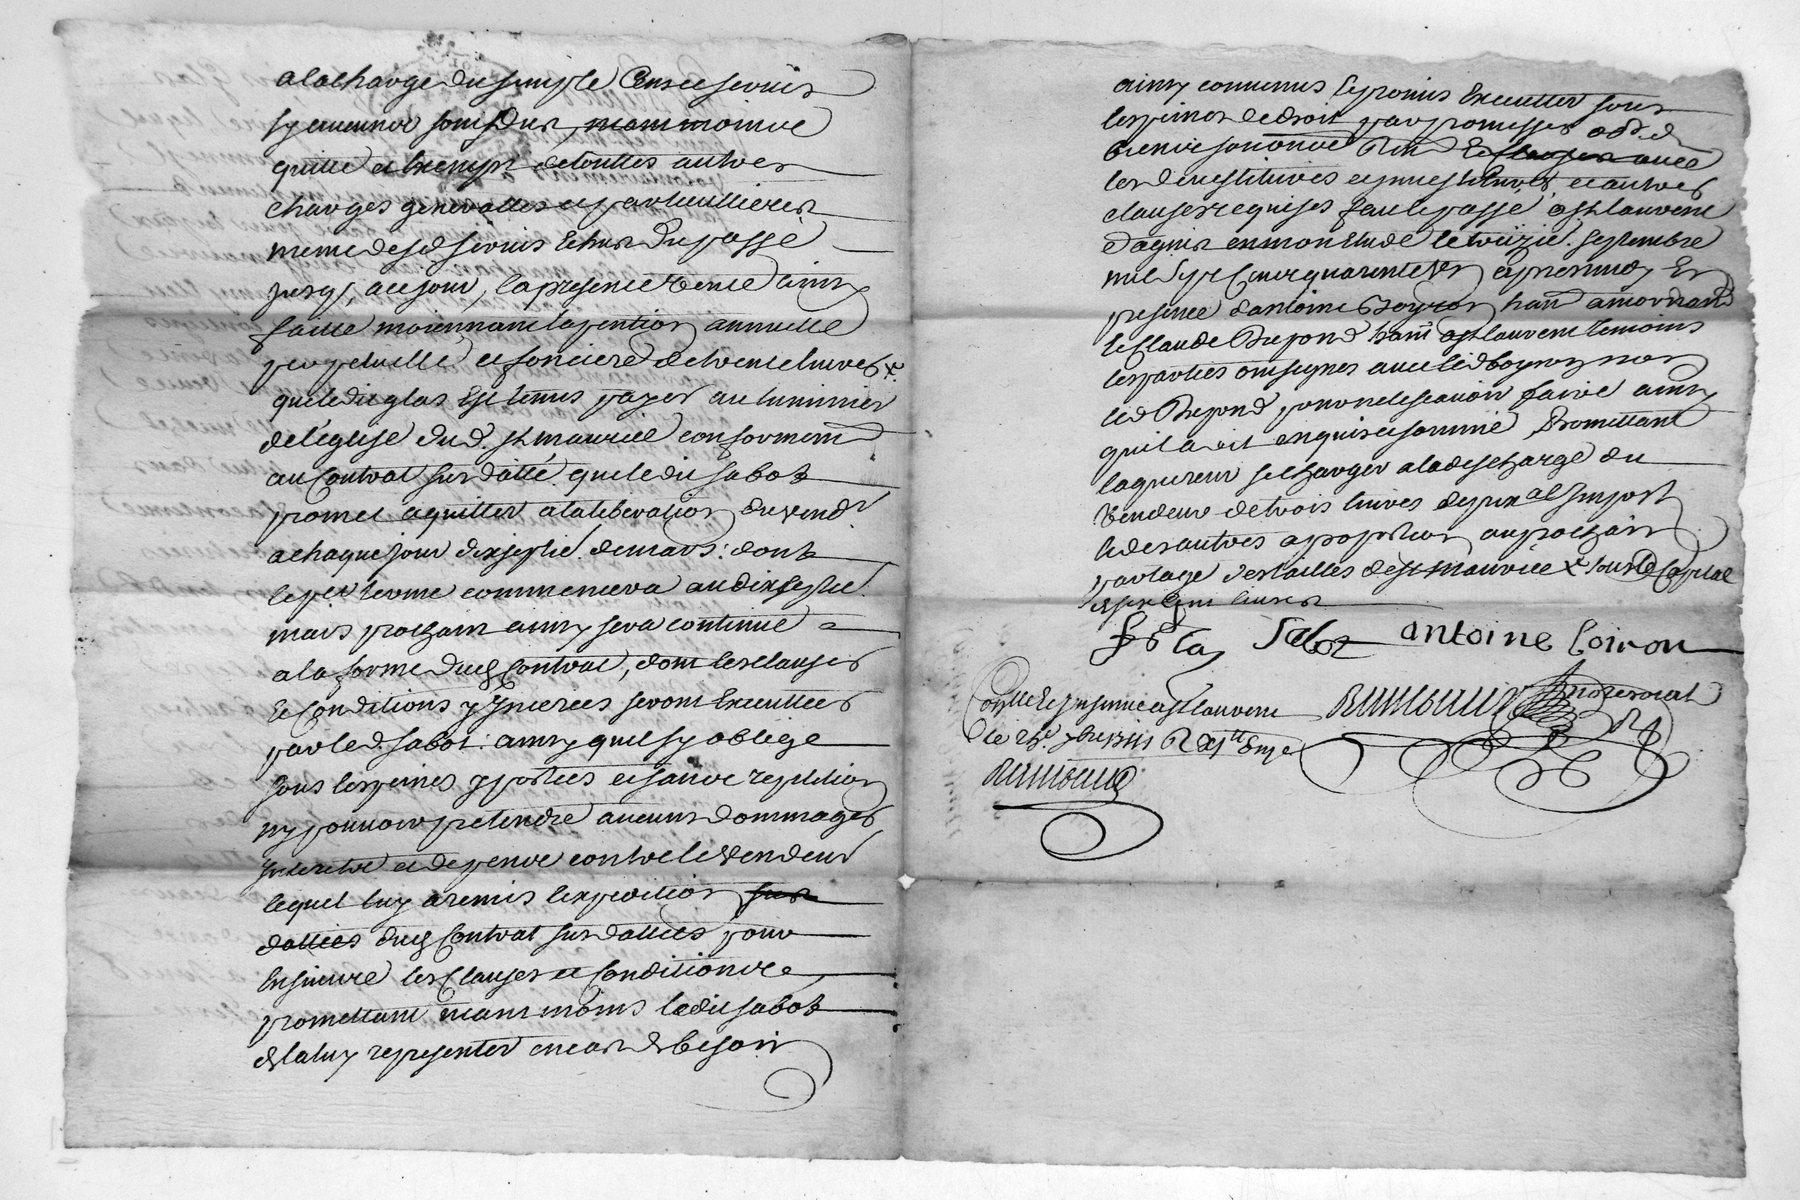 a la charge du simple Cens et servis
sy aucun se sont dus, neammoins
quitte et Exempt de touttes autres
charges generalles et particullieres
meme desd servis Echus du passé
jusq, a ce jour, la presente vente ainsy
faitte moiennant la pention annuelle
perpetuelle et fonciere de trente livres x
que ledit glas Est tenus payer au luminier
de l'eglise dud. st maurice conformem
au Contrat sus datté que ledit sabot
promet aquitter a la liberation du vendr
a chaque jour dixseptie de mars: dont
le per terme commencera au dixseptie
mars prochain ainsy sera continué
a la forme dud Contrat, dont les clauses
Et Conditions y Inserées seront Executtées
par led. sabot: ainsy quil sy oblige
sous les peines y portées et sans repetition
ny pouvoir pretendre aucuns dommages
Interets et depens contre le vendeur
lequel luy a remis l'expedition sus
dattées dud Contrat sus dattées pour
En suivre les Clauses et Conditions
promettant neammoins ledit sabot
de la luy representer en cas de besoin
ainsy convenus Et promis Executter sous
les peines de droit par promesses obb. d
biens
clauses requises fait et passé a st laurent
d'agnis en mon Etude le treizie septembre
mil sept Cent quarente apres midy En
presence d'antoine Boyron hant a mornand
et Claude Dupond hant a st laurent temoins
les parties ont signés avec led boyron non
led Dupond pour ne le scavoir faire ainsy
quil a dit enquis et sommé, Promettant
laquereur se charger a la descharge du
vendeur de trois livres de pral Impost
Et des autres a proportion au prochain
partage des tailles de st maurice x sous le Capital
de six Cent livres
glas Sabot antoine Coiron
Conttrolé Insinué a st laurent
le